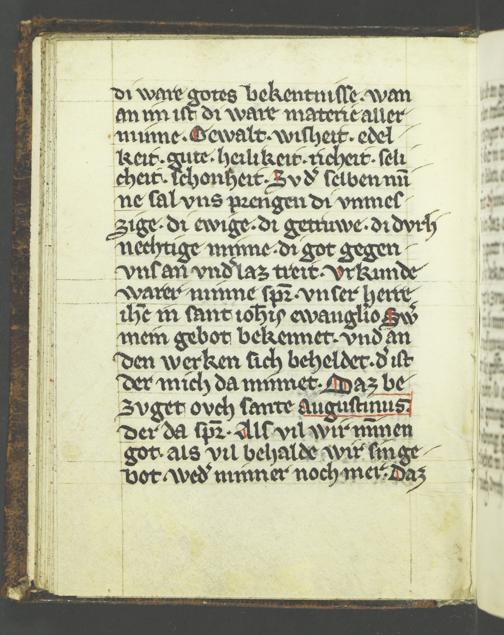 di ware gotes bekentnisse · wan
an im ist di ware materie aller
minne · Gewalt · wisheit · edel
keit · gute · heilikeit · richeit · seli
cheit · schonheit · Zvd᾽ selben mī
ne sal vns prengen di vnmes
zige · di ewige · di getruwe · di dvrh
nechtige minne · di got gegen
vns an vnd᾽ laz treit · vrkunde
warer minne spr̄ · vnser herre
ih̄c in sant ioh̄is ewauglio Sw᾽
mein gebot bekennet · vnd᾽ an
den werken sich beheldet · d᾽ ist
der mich da minnet · Daz be
zvget ovch sante augustinus ·
der da spr̄ · Als vil wir mīnen
got · als vil behalde wir sin ge
bot · wed᾽ minner noch mer · Daz